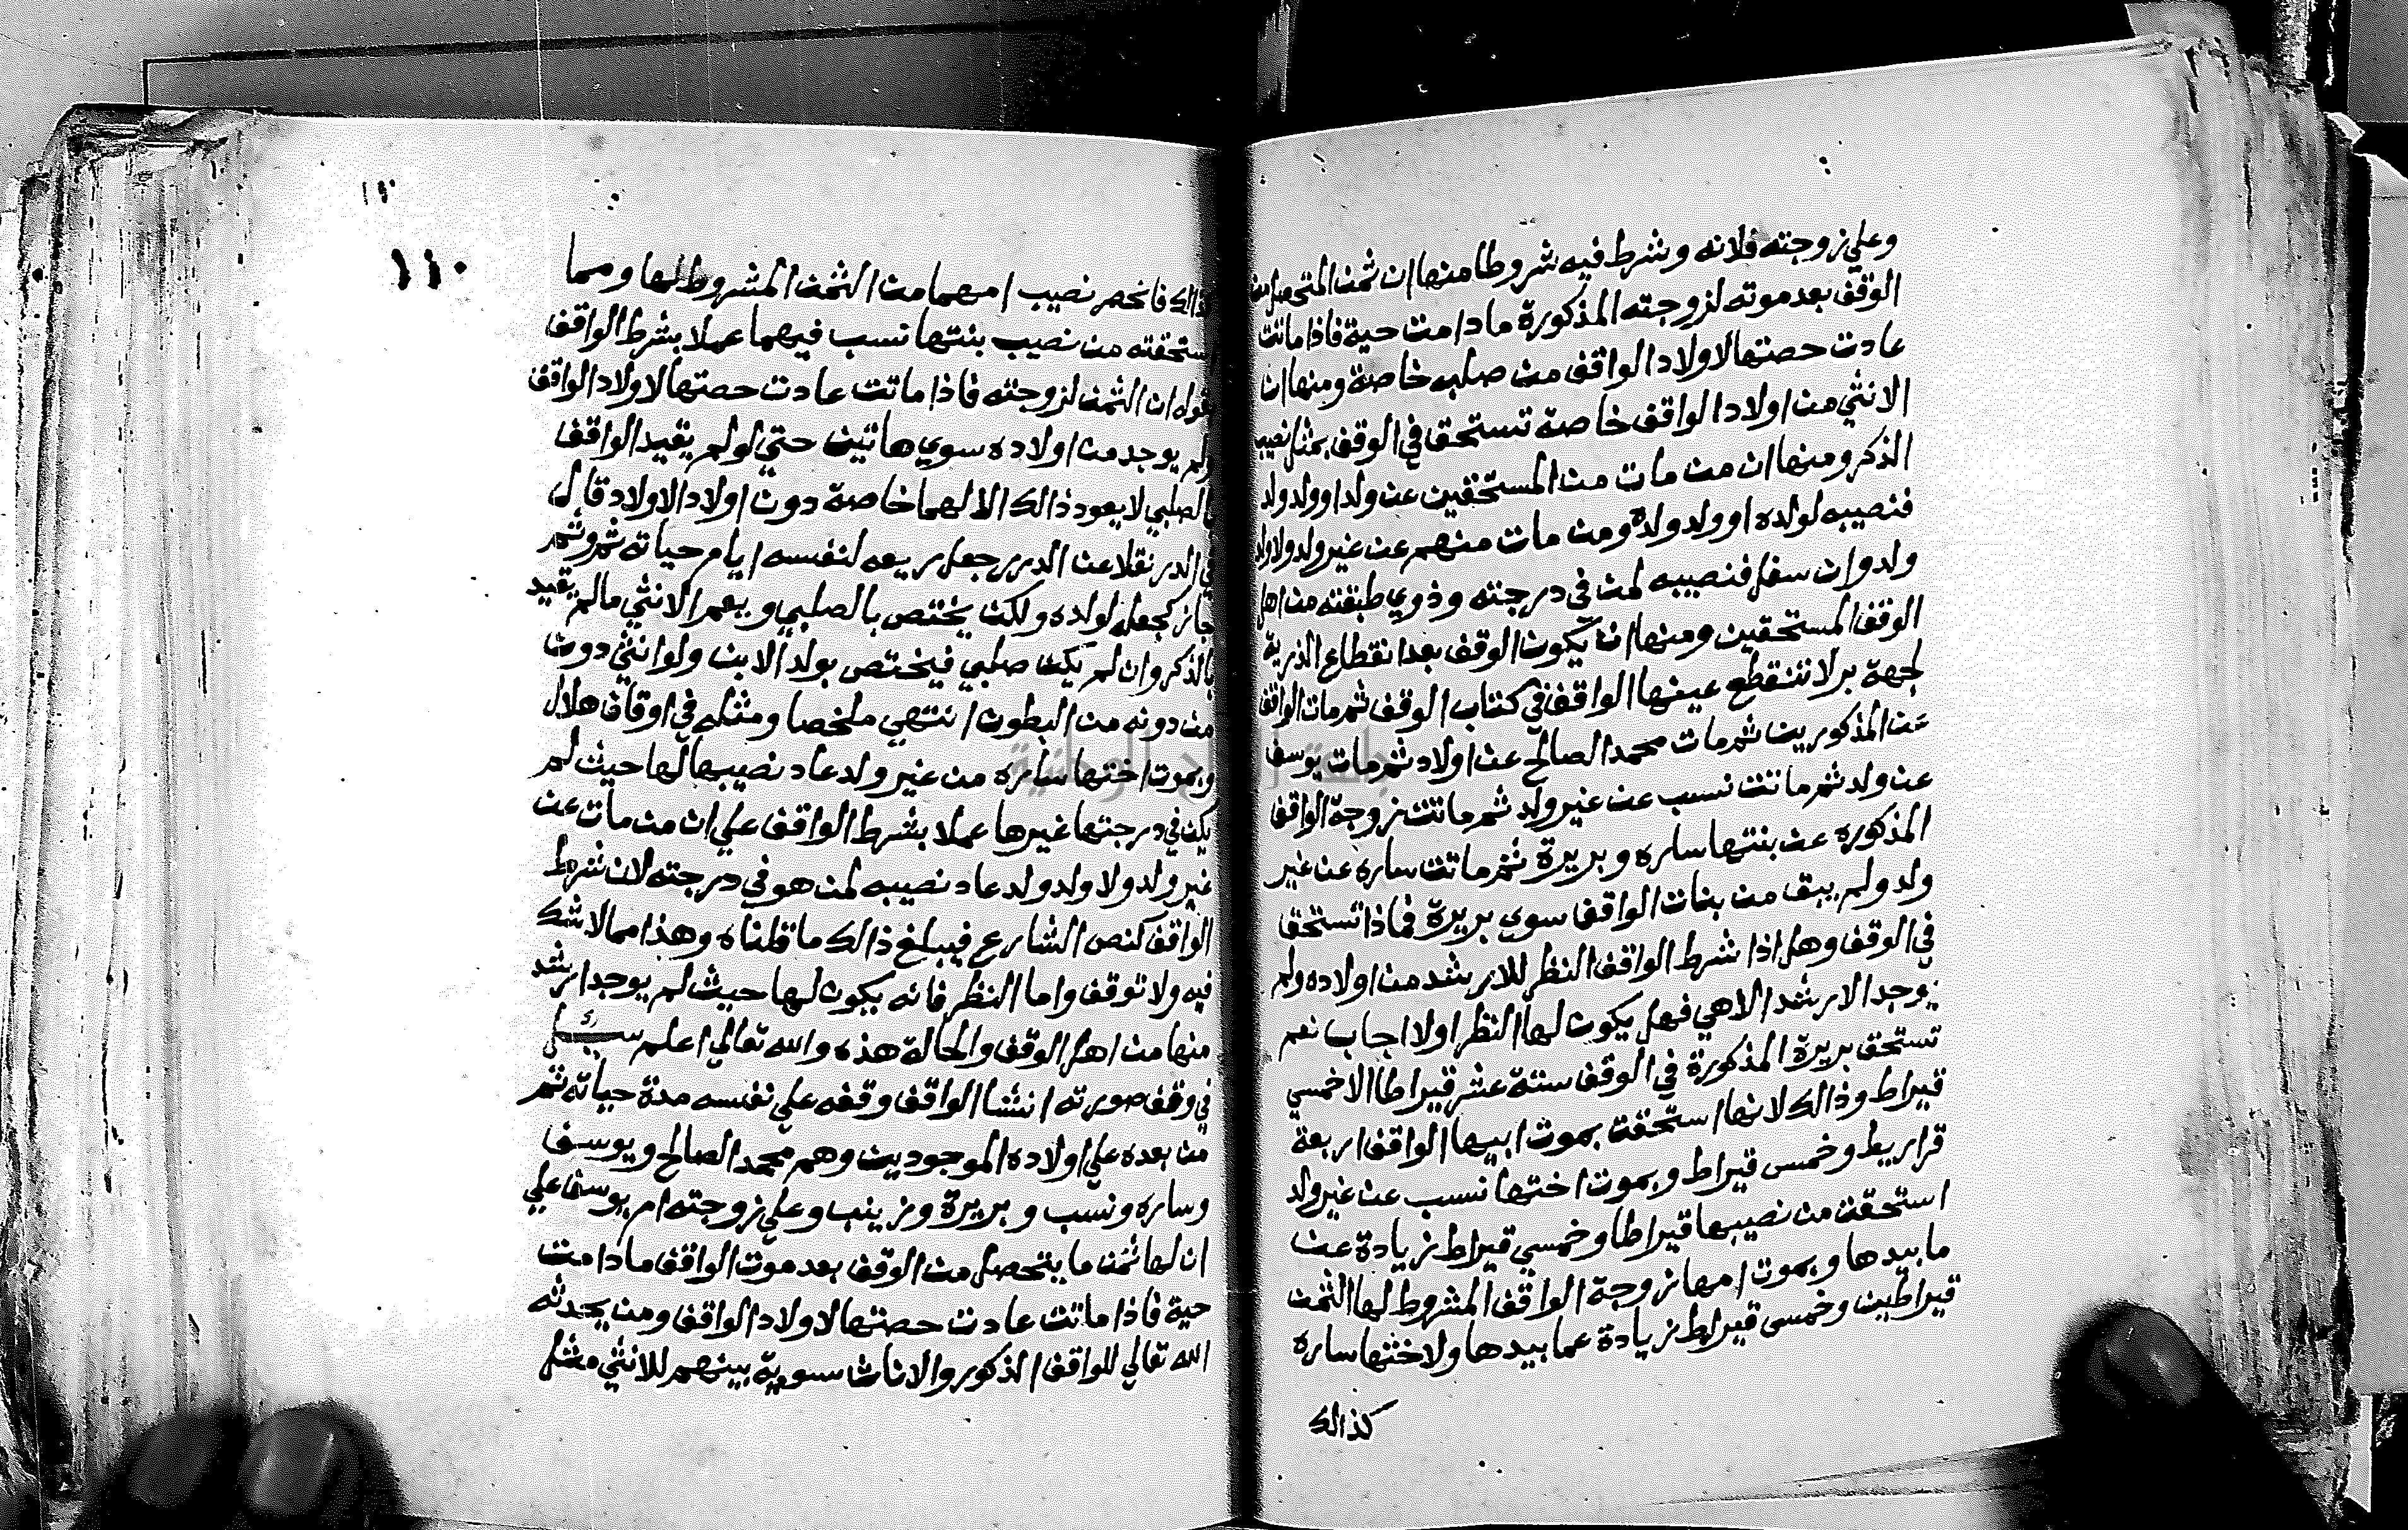 وعلي زوجته فلانه وشرط فيه شروطا منها ان ثمن المتحصل من
الوقف بعد موته لزوجته المذكورة ما دامت حية فاذا ماتت
عادت حصتها لاولاد الواقف من صلبه خاصة ومنها ان
الانثي من اولاد الواقف خاصة تستحق في الوقف بمثل نصيب
الذكر ومنها ان من مات من المستحقين عن ولد او ولد ولد
فنصيبه لولده او ولد ولده ومن مات منهم عن غير ولد ولا ولد
ولد وان سفل فنصيبه لمن في درجته وذوي طبقته من اهل
الوقف المستحقين ومنها ان يكون الوقف بعد انقطاع الذرية
لجهة بر لا تنقطع عينها الواقف في كتاب الوقف ثم مات الواقف
عن المذكورين ثم مات محمد الصالح عن اولاد ثم مات يوسف
عن ولد ثم ماتت نسب عن غير ولد ثم ماتت زوجة الواقف
المذكوره عن بنتها ساره وبريرة ثم ماتت ساره عن غير
ولد ولم يبق من بنات الواقف سوي بريرة فماذا تستحق
في الوقف وهل اذا شرط الواقف النظر للارشد من اولاده ولم
يوجد الارشد الا هي فهل يكون لها النظر اولا اجاب نعم
تستحق بريرة المذكورة في الوقف ستة عشر قيراطا الا خمسي
قيراط وذالك لانها استحقت بموت ابيها الواقف اربعة
قراريط وخمسي قيراط وبموت اختها نسب عن غير ولد
استحقت من نصيبها قيراطا وخمسي قيراط زيادة عن
ما بيدها وبموت امها زوجة الواقف المشروط لها الثمن
قيراطين وخمسي قيراط زيادة عما بيدها ولاختها ساره
كذالك
١١٠
كذالك فانحصر نصيب امهما من الثمن المشروط لها ومما
استحقته من نصيب بنتها نسب فيهما عملا بشرط الواقف
بقوله ان الثمن لزوجته فاذا ماتت عادت حصتها لاولاد الواقف
ولم يوجد من اولاده سوي هاتين حتي لو لم يقيد الواقف
بالصلبي لا يعود ذالك الا لهما خاصة دون اولاد الاولاد قال
في الدر نقلا عن الدرر جعل ريعه لنفسه ايام حياته ثم وثم
جاز كجعله لولده ولكن يختص بالصلبي ويعم الانثي مالم يقيد
بالذكر وان لم يكن صلبي فيختص بولد الابن ولو انثي دون
من دونه من البطون انتهي ملخصا ومثله في اوقاف هلال
وبموت اختها ساره من غير ولد عاد نصيبها لها حيث لم
يكن في درجتها غيرها عملا بشرط الواقف علي ان من مات عن
غير ولد ولا ولد ولد عاد نصيبه لمن هو في درجته لان شرط
الواقف كنص الشارع فيبلغ ذالك ما قلناه وهذا مما لا شك
فيه ولا توقف واما النظر فانه يكون لها حيث لم يوجد ارشد
منها من اهل الوقف والحالة هذه والله تعالي اعلم سئل
في وقف صورته انشا الواقف وقفه علي نفسه مدة حياته ثم
من بعده علي اولاده الموجودين وهم محمد الصالح ويوسف
وساره ونسب وبريرة وزينب وعلي زوجته ام يوسف علي
ان لها ثمن ما يتحصل من الوقف بعد موت الواقف ما دامت
حية فاذا ماتت عادت حصتها لاولاد الواقف ومن يحدثه
الله تعالي للواقف الذكور والاناث سوية بينهم للانثي مثل